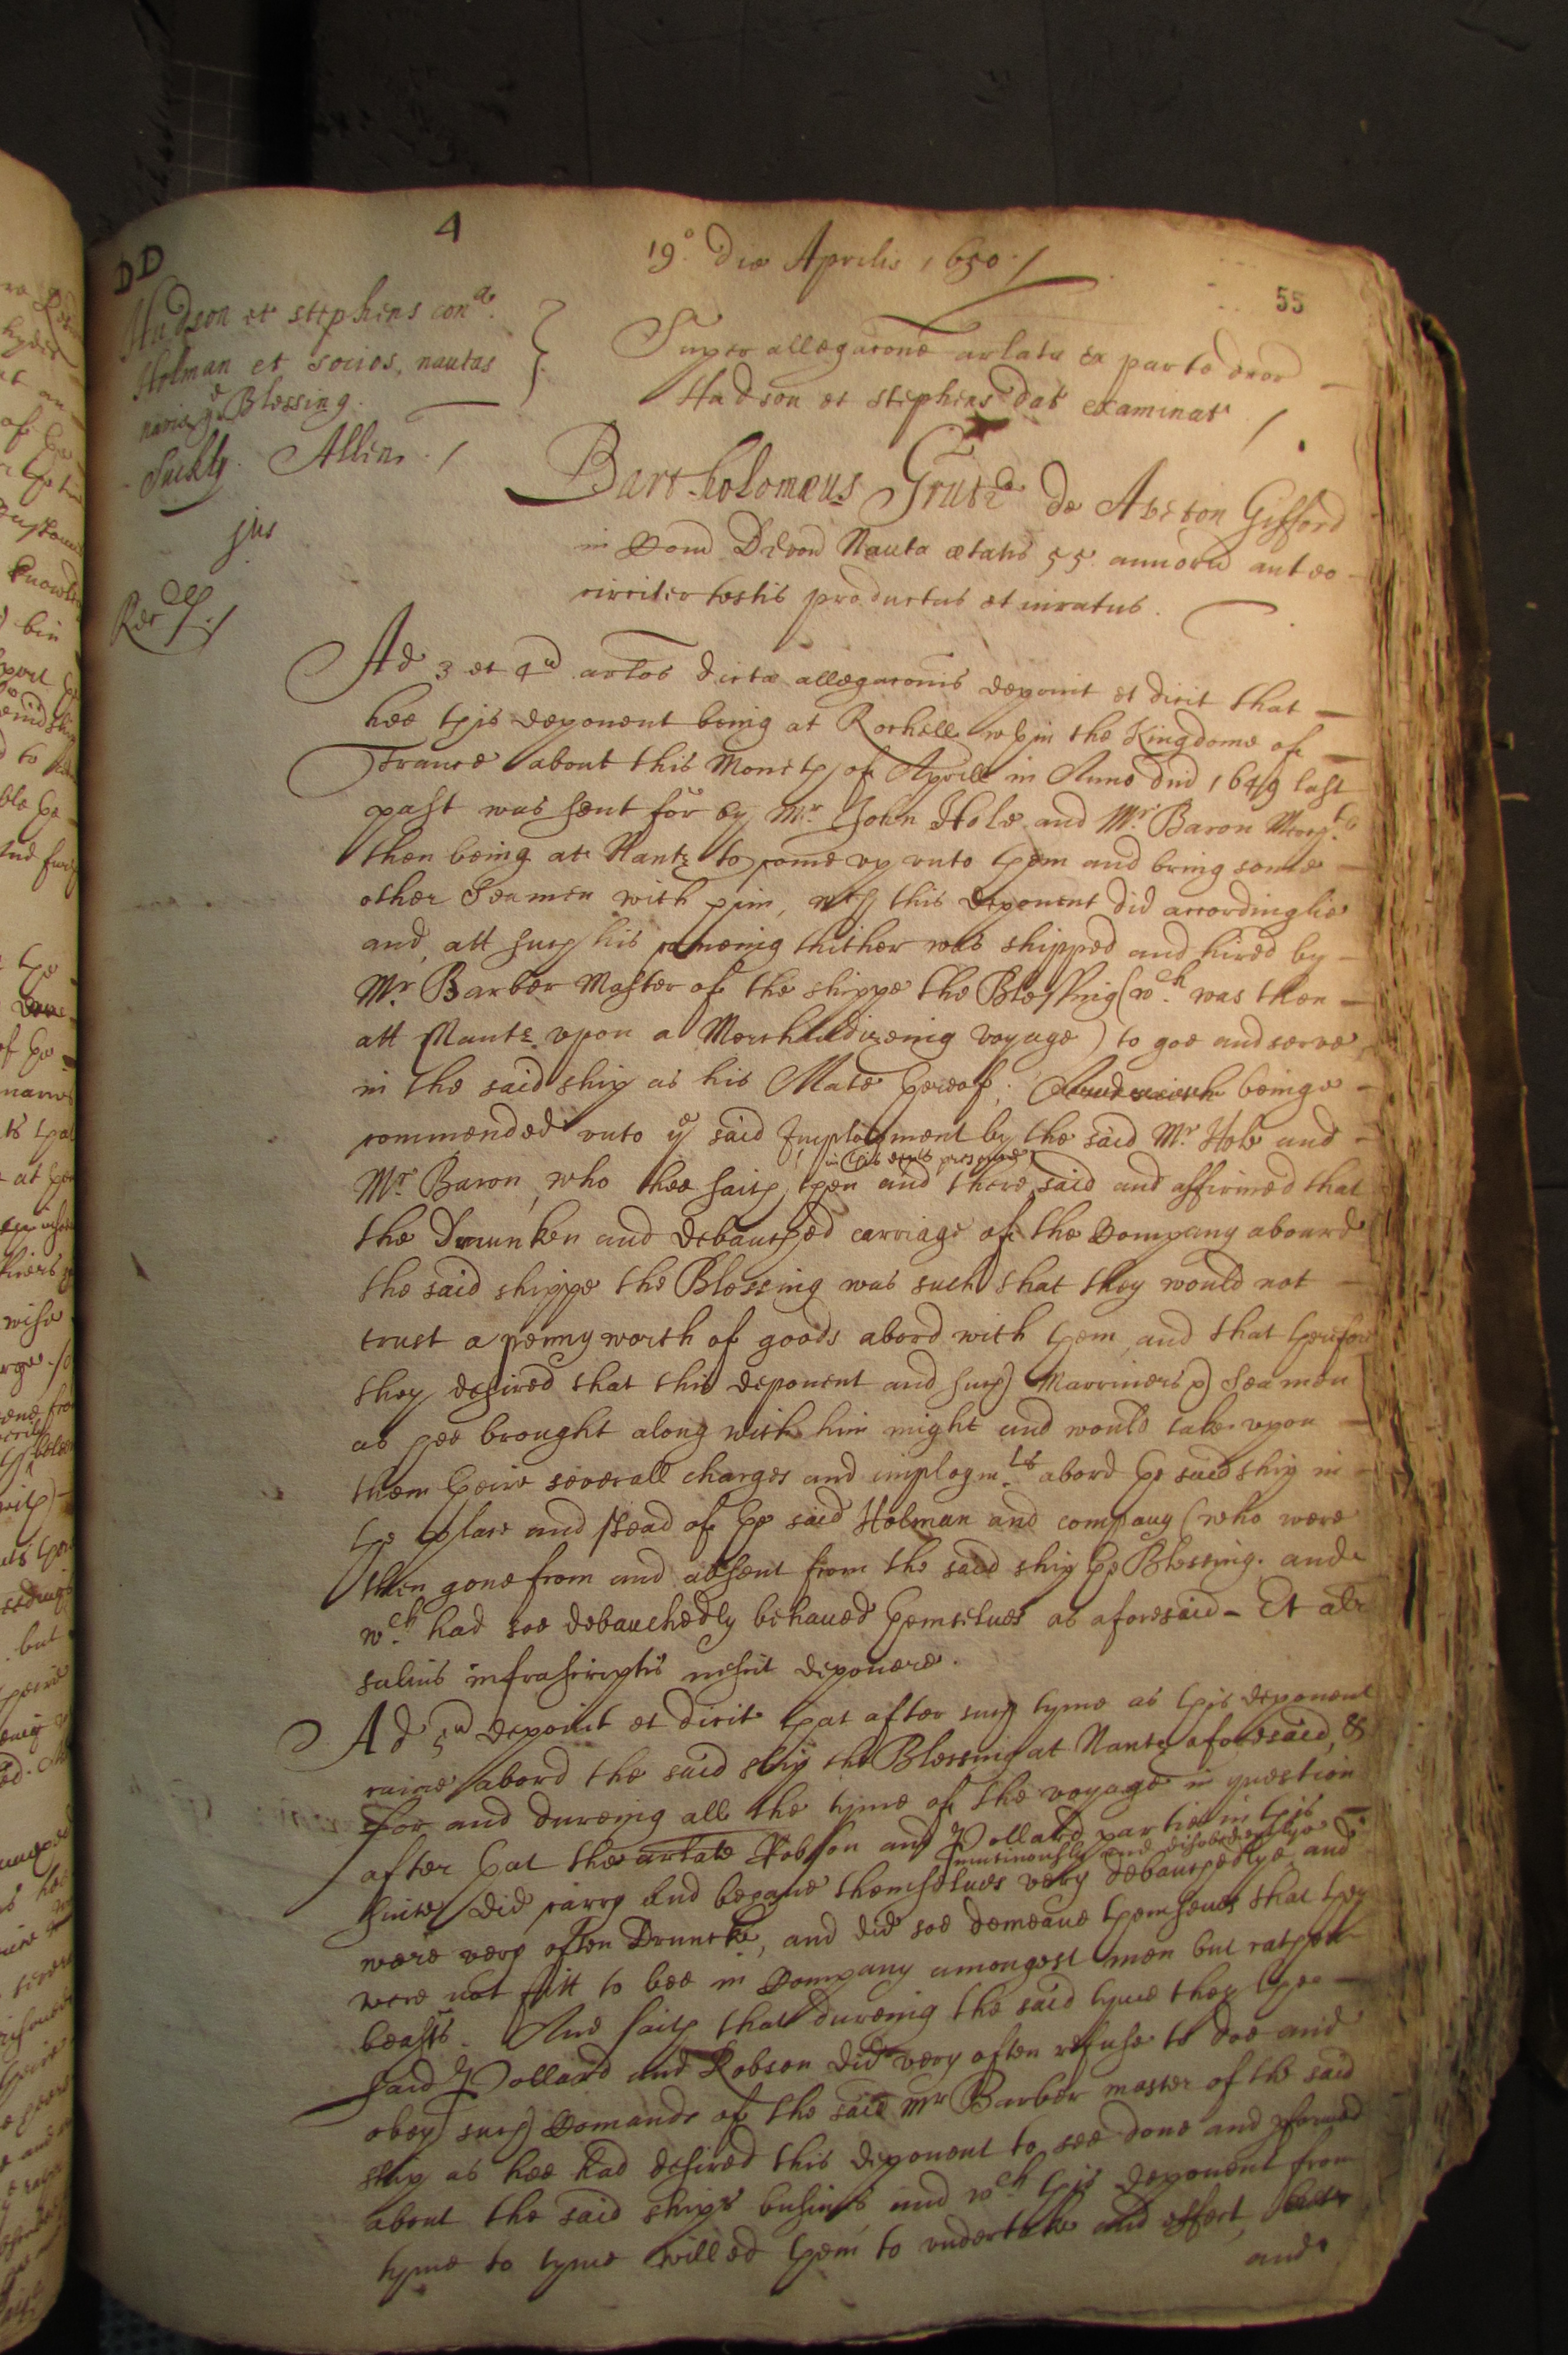 DD
4
19º. die Aprilis 1650./
55
Hudson et Stephens con^a.
Holman et socios, nautas
navis ye Blessing.
Suckly. Allen. /
Super allegacone arlata ex parte dcor
Hudson et Stephens dat examinat /
jus
Bartholomeus de Aveton Gifford
in Com Devon Nauta ætatis 55 annorũ aut eo
circiter testis productus et iuratus.
Ad 3 et 4^u arlos dictæ allegaconis deponit et dicit that
hee this deponent being at Rochell wthin the Kingdome of
France about this Moneth of Aprill in Anno dni 1649 last
past was sent for by Mr. John Hole and Mr. Baron Merch^ts
then being at Nantz to come vp vnto them and bring some
other Seamen with him, wch this deponent did accordinglie
and, att such his comeing thither was shipped and hired by
Mr Barber Master of the shippe the Blessing (w^ch was then
att Nantz vpon a Merchãdizeing voyage) to goe and serve
in the said ship as his Mate thereof; beinge
commended vnto ye said Imployment by the said Mr Hole and
in this depts presence
Mr. Baron, who hee saith then and there said and affirmed that
the Drunken and debauched carriage of the Company abourd
the said shippe the Blessing was such that they would not
trust a penny worth of goods abord with them, and that therefore
they desired that this deponent and such Marriners & Seamen
as hee brought along with him might and would take vpon
them theire severall charges and imploym^ts abord the said ship in
the place and stead of the said Holman and company (who were
then gone from and absent from the said ship the Blessing. and
w^ch had soe debauchedly behaued themselues as aforesaid - Et alr
saluis infrascriptis nescit deponere.
Ad 5^u deponit et dicit that after such tyme as this deponent
came abord the said ship the Blessing at Nantz aforesaid, &
for and dureing all the tyme of the voyage in question
after that the arlate Robson and Pollard parties in this
mutinously and disobediently
suite did carry and behaue themselues very debauchedlye and
were very often Druncke, and did soe demeane themselues that they
were not fitt to bee in Company amongest men but rather
beasts. And saith that dureing the said tyme they the
said Pollard and Robson did very often refuse to doe and
obey such Comands of the said Mr Barber master of the said
ship as hee had desired this deponent to see done and pformed
about the said ships busines and w^ch this deponent from
tyme to tyme willed them to vndertake and effect, but
and